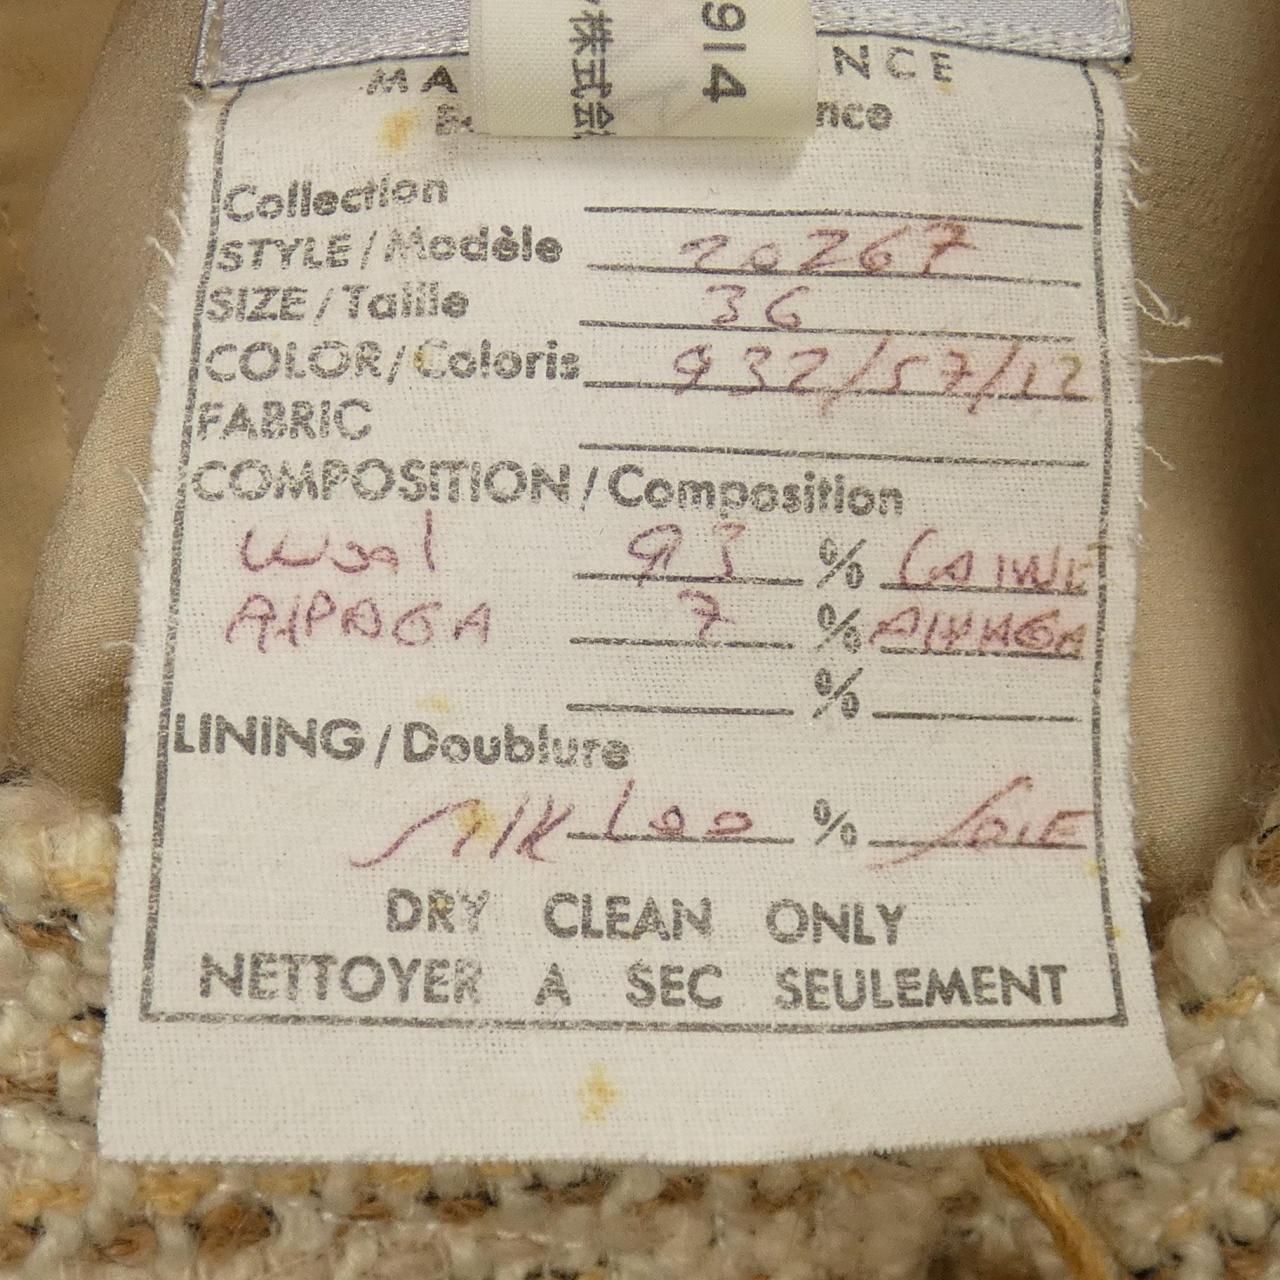 914
株式会
MA NCE
nce
Collection
STYLE/Modèle 20267
SIZE/Taille 36
COLOR/Coloris 932/57/12
FABRIC
COMPOSITION/Composition
Wool 93 % LAINE
AlPAGA 7 % AlPAGA
%
LINING/Doublure
Silk 100 % SOIE
DRY CLEAN ONLY
NETTOYER A SEC SEULEMENT